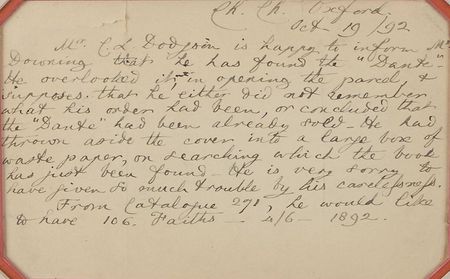 Ch. Ch. Oxford.
Oct 19/92
Mr. C. L. Dodgson is happy to inform Mr.
Downing that he has found the "Dante" -
He overlooked it, in opening the parcel, &
supposes that he either did not remember
what his order had been, or concluded that
the "Dante" had been already sold - He had
thrown aside the cover into a large box of
waste paper, on searching which the book
has just been found - He is very sorry to
have given so much trouble by his carelessness.
From Catalogue 271, he would like
to have 106. Faiths - 4/6 - 1892 -